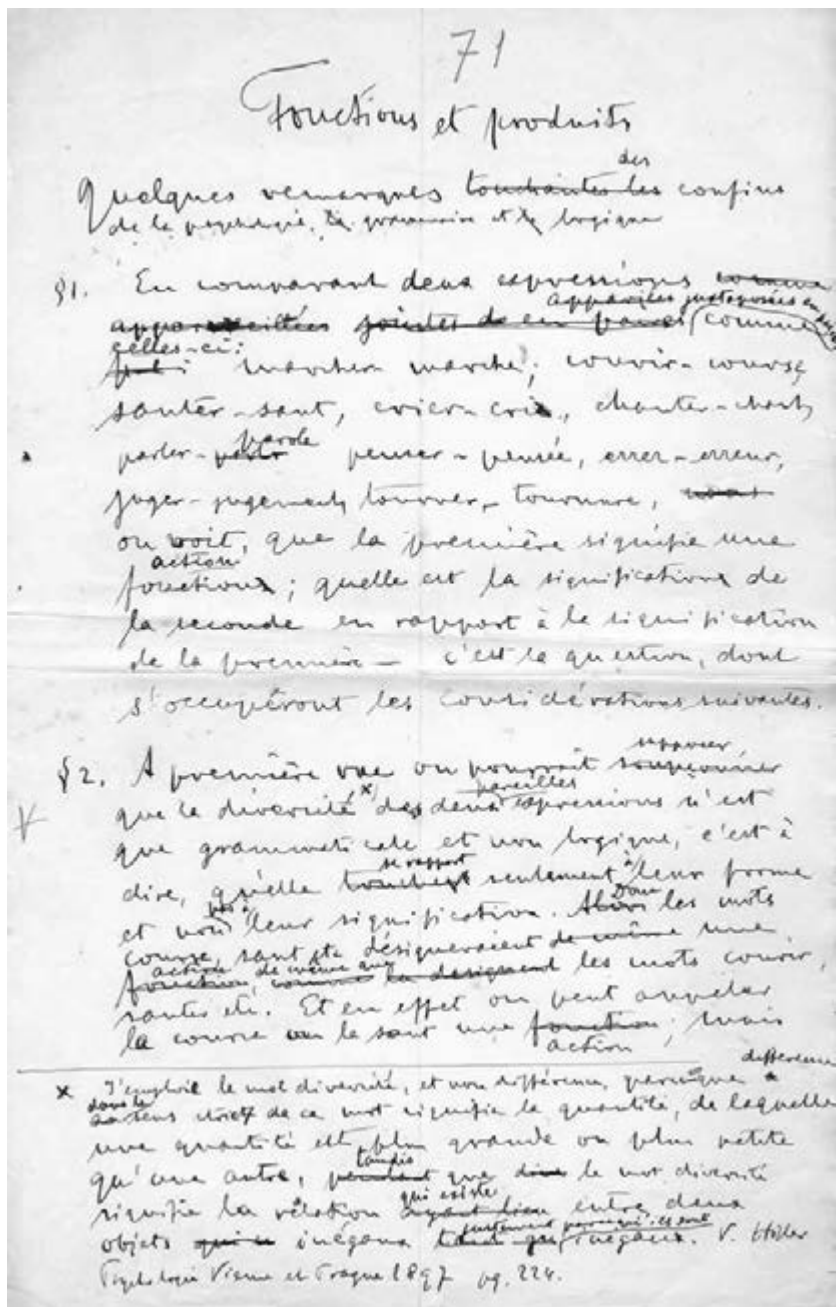 71
Fonctions et produits
des
Quelques remarques touchantes les confins
de la psychologie, la grammaire et la logique
§1. En comparant deux expressions comme
appareillées juxtaposées en
appareillées jointes de en paires comme
celles-ci:
marcher-marche; courir-course,
sauter-saut, crier-cri, chanter-chant,
parole
parler- penser-pensée, errer-erreur,
juger-jugement, tourner-tournure, nous
on voit, que la première signifie une
action
fonction; quelle est la signification de
la seconde en rapport à la signification
de la première — c'est la question, dont
s'occuperont les considérations suivantes.
supposer,
§2. A première vue on pourrait soupçonner
pareilles
que la diversité x des deux expressions n'est
que grammaticale et non logique, c'est à
se rapport à
dire, qu'elle touchent seulement leur forme
pas à Donc
et non leur signification. Alors les mots
course, saut etc. désigneraient de même une
action de même que
fonction, comme la designent les mots courir,
sauter etc. Et en effet on peut appeler
la course ou le saut une fonction; mais
action
différence
x J'emploie le mot diversité, et non différence, parceque
dans le
sens strict de ce mot signifie la quantité, de laquelle
une quantité est plus grande ou plus petite
tandis
qu'une autre, pendant que le mot diversité
qui existe
signifie la rélation ayant lieu entre deux
justement
objets inégaux inégaux. V. Höfler
Psychologie Vienne et Prague 1897 pg. 224.